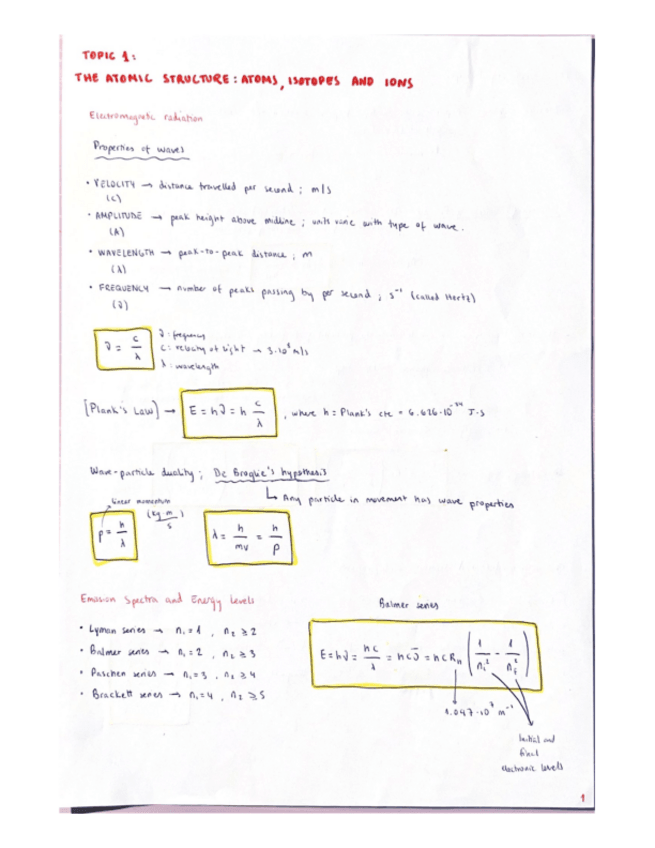 TOPIC 1:
THE ATOMIC STRUCTURE: ATOMS, ISOTOPES AND IONS
Electromagnetic radiation
Properties of waves
• VELOCITY → distance travelled per second ; m/s
(c)
• AMPLITUDE → peak height above midline ; units varie with type of wave.
(A)
• WAVELENGTH → peak-to-peak distance ; m
(λ)
• FREQUENCY → number of peaks passing by per second ; s⁻¹ (called Hertz)
(ν)
ν = c/λ
ν: frequency
c: velocity of light → 3·10⁸ m/s
λ: wavelength
[Plank's Law] → E = hν = h c/λ , where h = Plank's cte = 6.626·10⁻³⁴ J·s
Wave-particle duality ; De Broglie's hypothesis
↳ Any particle in movement has wave properties
linear momentum
(kg·m/s)
p = h/λ
λ = h/mv = h/p
Emission Spectra and Energy levels
Balmer series
• Lyman series → n₁=1 , n₂ ≥ 2
• Balmer series → n₁=2 , n₂ ≥ 3
• Paschen series → n₁=3 , n₂ ≥ 4
• Brackett series → n₁=4 , n₂ ≥ 5
E = hν = hc/λ = hcν̄ = hcRₕ (1/nᵢ² - 1/n_f²)
1.097·10⁷ m⁻¹
Initial and
final
electronic levels
1